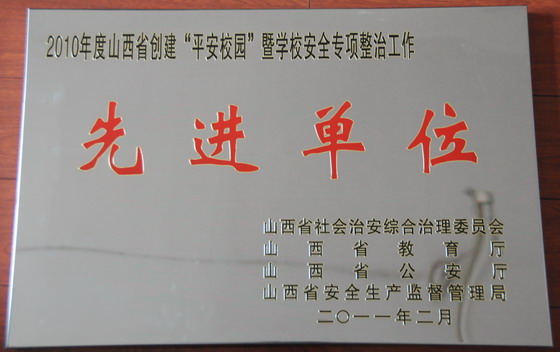 2010年度山西省创建“平安校园”暨学校安全专项整治工作
先进单位
山西省社会治安综合治理委员会
山西省教育厅
山西省公安厅
山西省安全生产监督管理局
二〇一一年二月